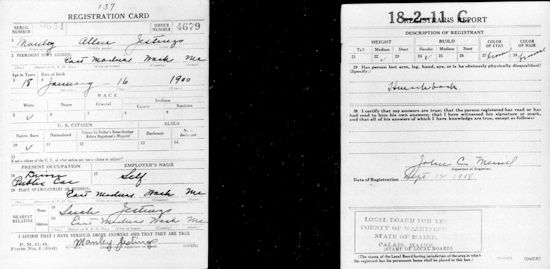 137
REGISTRATION CARD
SERIAL NUMBER
ORDER NUMBER 4679
1 Manley Allen Jestings
2 PERMANENT HOME ADDRESS:
East Machias Wash Me
Age in Years Date of Birth
18 January 16 1900
RACE
White Negro Oriental Indian
Citizen Noncitizen
5 ✓
U. S. CITIZEN ALIEN
Native Born Naturalized Citizen by Father's Naturalization Before Registrant's Majority Declarant Non-declarant
10 ✓
15
If not a citizen of the U. S., of what nation are you a citizen or subject?
PRESENT OCCUPATION EMPLOYER'S NAME
16 Driver Public Car 17 Self
18 PLACE OF EMPLOYMENT OR BUSINESS:
East Machias Wash Me
NEAREST RELATIVE
Name 19
Jestings
Address 20 East Machias Wash Me
I AFFIRM THAT I HAVE VERIFIED ABOVE ANSWERS AND THAT THEY ARE TRUE
P. M. G. O.
Form No. 1 (Red)
Manley Jestings
(OVER)
18-2-11 C
REGISTRAR'S REPORT
DESCRIPTION OF REGISTRANT
HEIGHT BUILD COLOR OF EYES COLOR OF HAIR
Tall Medium Short Slender Medium Stout
21 22 ✓ 23 24 ✓ 25 26 27 Brown 28 Brown
29 Has person lost arm, leg, hand, eye, or is he obviously physically disqualified? (Specify.)
Hunchback
30 I certify that my answers are true; that the person registered has read or has had read to him his own answers; that I have witnessed his signature or mark, and that all of his answers of which I have knowledge are true, except as follows:
John C.
(Signature of Registrar)
Date of Registration Sept. 12 1918
LOCAL BOARD FOR THE
COUNTY OF WASHINGTON
STATE OF MAINE,
CALAIS, MAINE
(STAMP OF LOCAL BOARD)
(The stamp of the Local Board having jurisdiction of the area in which the registrant has his permanent home shall be placed in this box.)
(OVER)